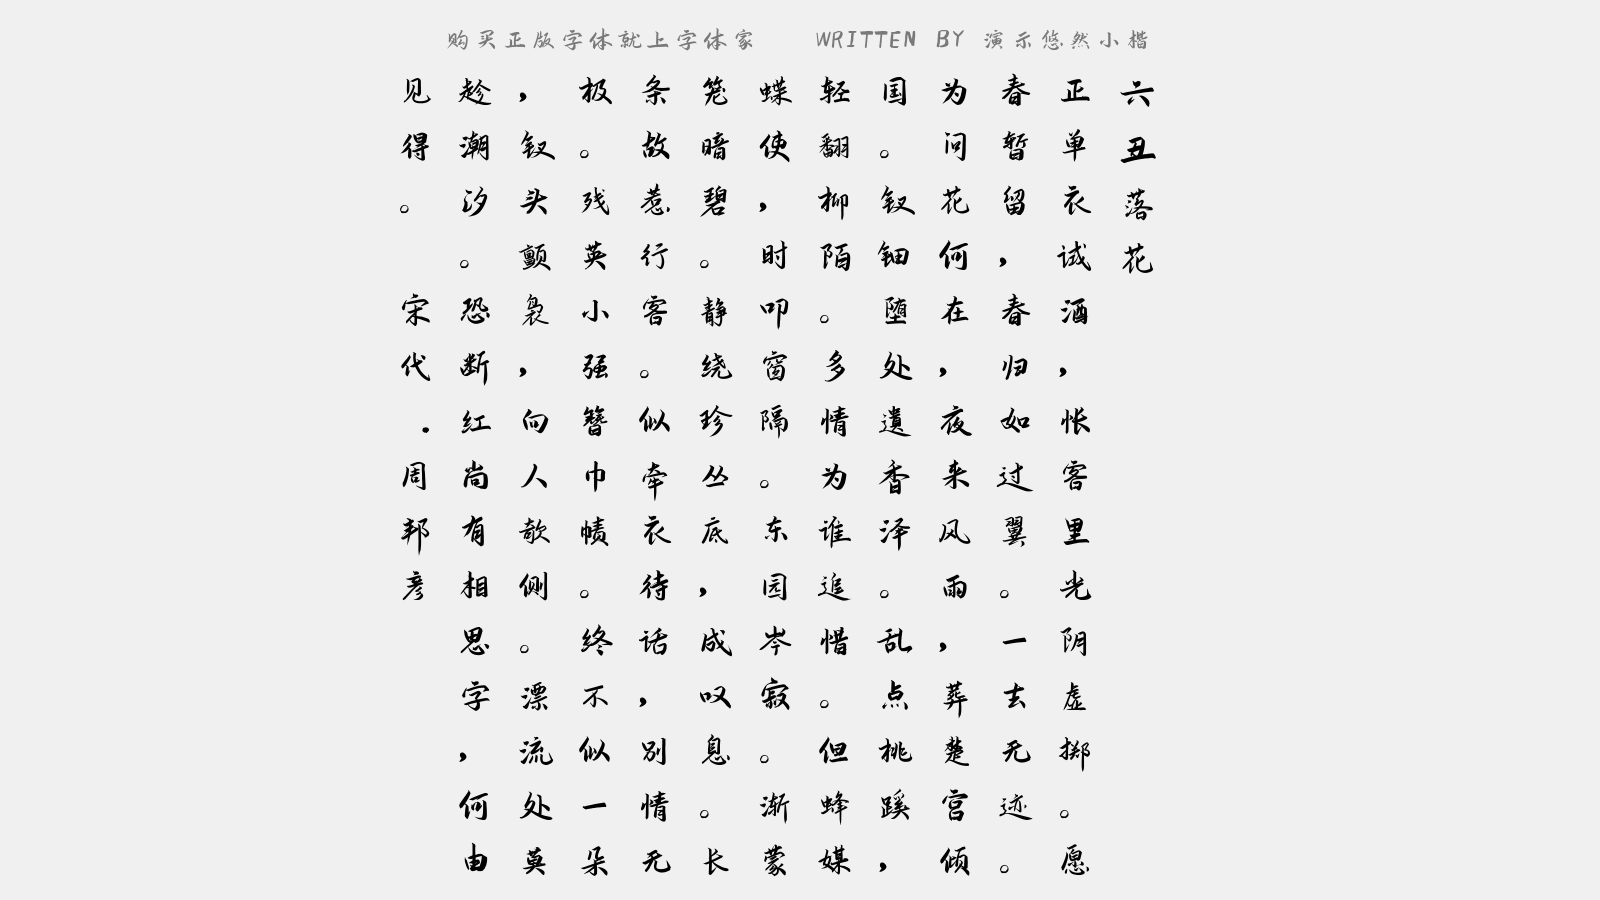 购买正版字体就上字体家 WRITTEN BY 演示悠然小楷
六丑落花
正单衣试酒，怅客里光阴虚掷。愿
春暂留，春归如过翼。一去无迹。
为问花何在，夜来风雨，葬楚宫倾
国。钗钿堕处遗香泽。乱点桃蹊，
轻翻柳陌。多情为谁追惜。但蜂媒
蝶使，时叩窗隔。东园岑寂。渐蒙
笼暗碧。静绕珍丛底，成叹息。长
条故惹行客。似牵衣待话，别情无
极。残英小强簪巾帻。终不似一朵
，钗头颤袅，向人欹侧。漂流处莫
趁潮汐。恐断红尚有相思字，何由
见得。 宋代．周邦彦